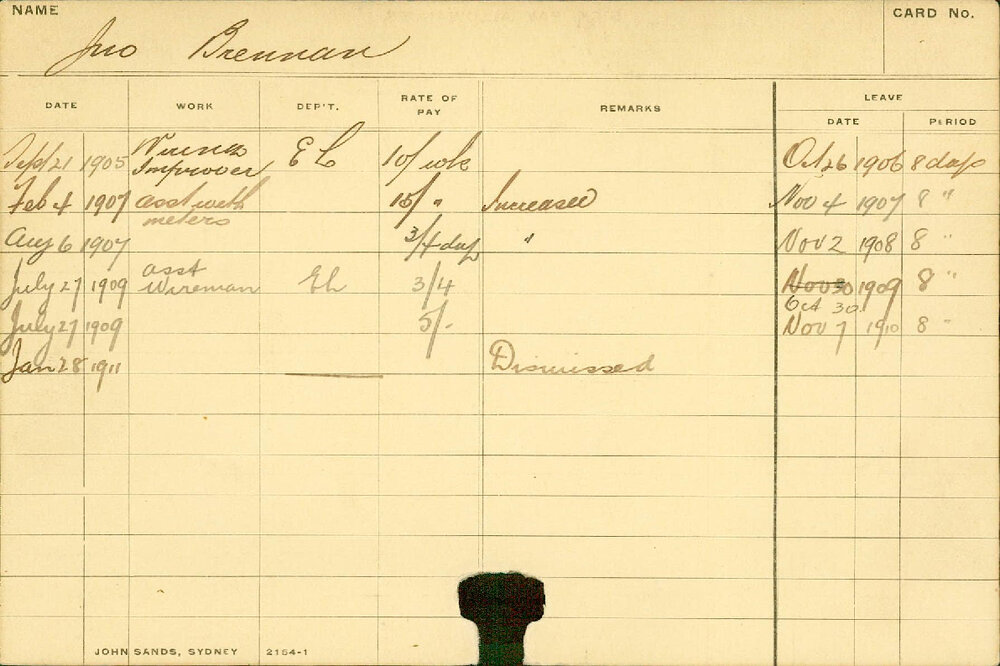 NAME
CARD No.
Jno Brennan
DATE WORK DEP'T. RATE OF PAY REMARKS LEAVE
DATE PERIOD
Sept 21 1905 Wireman Improver EL 10/ wk Oct 26 1906 8 days
Feb 4 1907 asst with meters " Increased Nov 4 1907 8 "
Aug 6 1907 3/4 day " Nov 2 1908 8 "
July 27 1909 asst Wireman EL 3/4 Nov 30 1909 8 "
Oct 30
July 27 1909 5/- Nov 7 1910 8 "
Jan 28 1911 Dismissed
JOHN SANDS, SYDNEY 2154-1